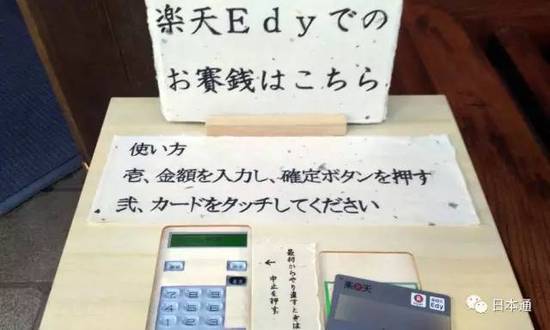 楽天Edyでの
お賽銭はこちら
使い方
壱、金額を入力し、確定ボタンを押す
弐、カードをタッチしてください
最初からやり直すときは
中止を押す
楽天
Edy
日本通